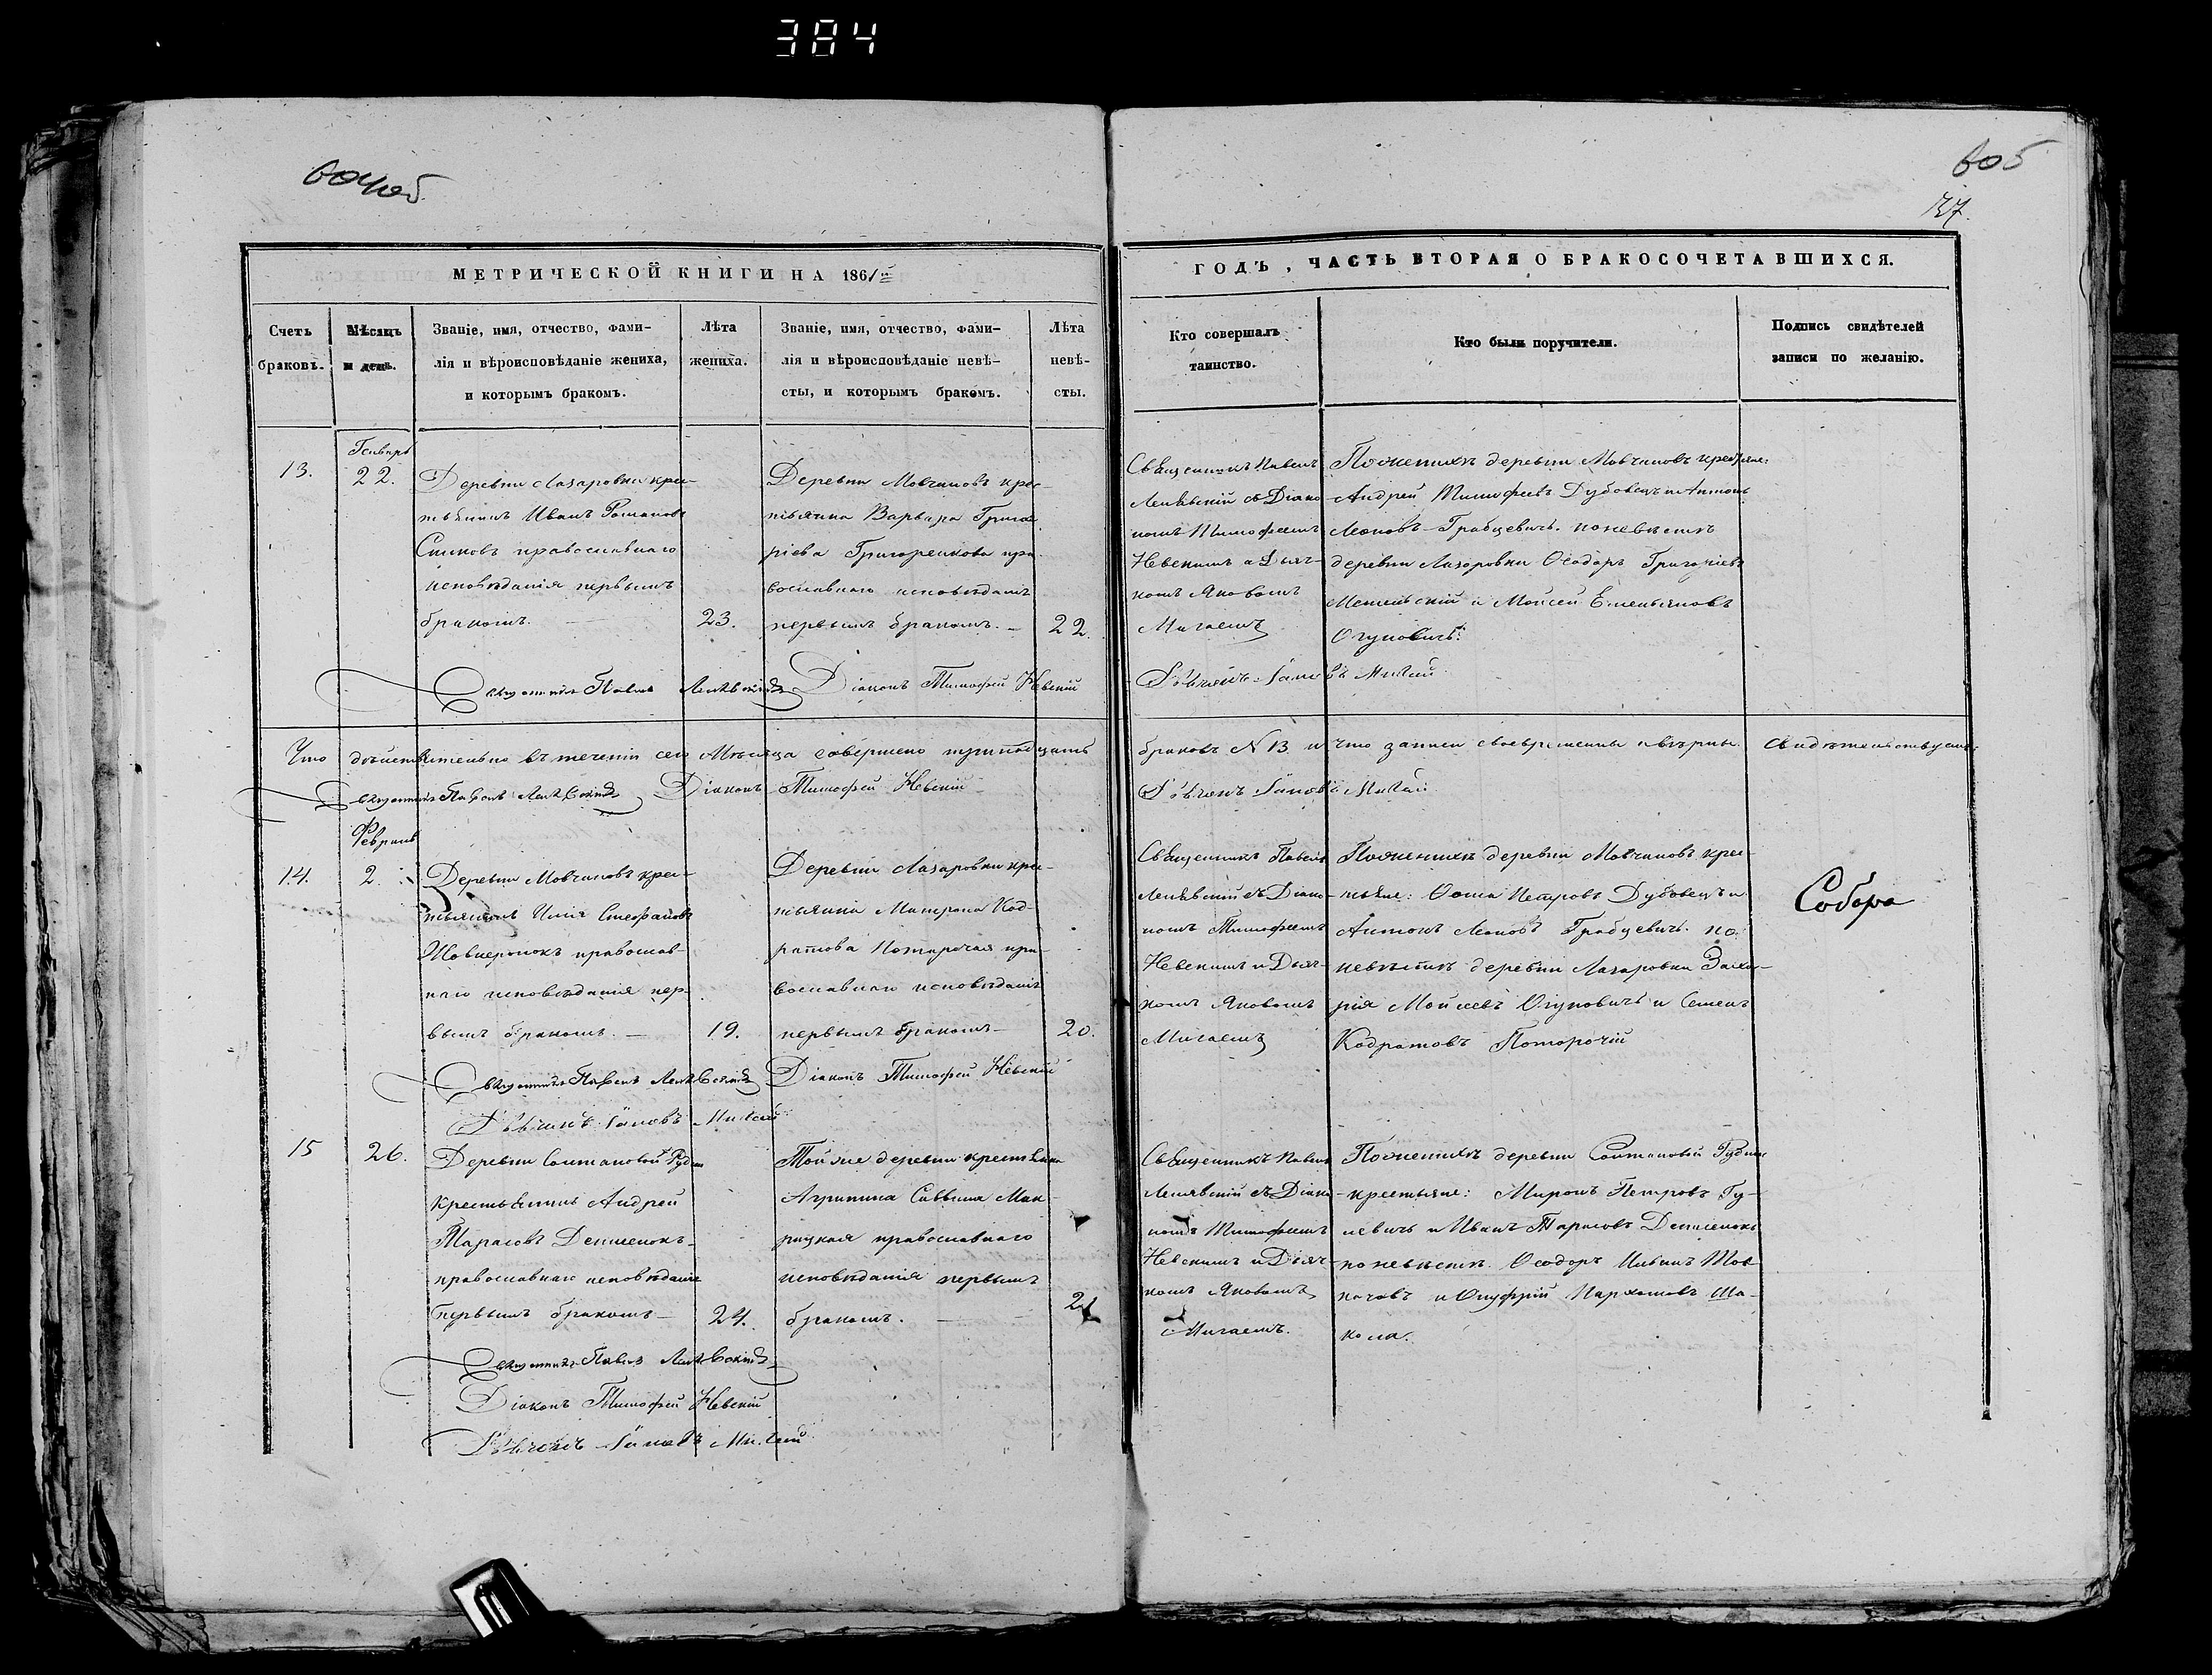 384
604об
605
127.
МЕТРИЧЕСКОЙ КНИГИ НА 1861й
ГОДЪ, ЧАСТЬ ВТОРАЯ О БРАКОСОЧЕТАВШИХСЯ.
Счетъ
браковъ.
Мѣсяцъ
и день.
Званіе, имя, отчество, фами-
лія и вѣроисповѣданіе жениха,
и которымъ бракомъ.
Лѣта
жениха.
Званіе, имя, отчество, фами-
лія и вѣроисповѣданіе невѣ-
сты, и которымъ бракомъ.
Лѣта
невѣ-
сты.
Кто совершалъ
таинство.
Кто были поручители.
Подпись свидѣтелей
записи по желанію.
13.
Генварь
22.
Деревни Лазаровки крес-
тьянинъ Иванъ Романовъ
православнаго
исповѣданія первымъ
бракомъ.
23.
Деревни Мовчановъ крес-
тьянка Варвара Григо-
ріева Григоренкова пра-
вославнаго исповѣданія
первымъ бракомъ.
22.
Священникъ Павелъ
съ Діако-
номъ Тимофеемъ
Невскимъ и Дьяч-
комъ Яковомъ
Мигаемъ
По женихѣ деревни Мовчановъ крестьяне:
Андрей Тимофеевъ Дубовецъ и Антонъ
Леоновъ Грабцевичъ. по невѣстѣ
деревни Лазаровки Ѳеодоръ Григоріевъ
и Моисей Емельяновъ
Огуповичъ.
Священникъ Павелъ
Діаконъ Тимофей Невскій
Дьячекъ Яковъ Мигай
Что дѣйствительно въ теченіи сего Мѣсяца совершено тринадцать
браковъ N 13 и что записи своевременны и вѣрны. свидѣтельствуемъ:
Священникъ Павелъ
Діаконъ Тимофей Невскій
Дьячекъ Яковъ Мигай
14.
Февраль
2.
Деревни Мовчановъ крес-
тьянинъ Илія Стефановъ
православ-
наго исповѣданія пер-
вымъ бракомъ.
19.
Деревни Лазаровки крес-
тьянка Матрона Код-
ратова Поторочая пра-
вославнаго исповѣданія
первымъ бракомъ
20.
Священникъ Павелъ
съ Діако-
номъ Тимофеемъ
Невскимъ и Дьяч-
комъ Яковомъ
Мигаемъ
По женихѣ деревни Мовчановъ крес-
тьяне: Ѳома Петровъ Дубовецъ и
Антонъ Леоновъ Грабцевичъ. по
невѣстѣ деревни Лазаровки Заха-
рія Моисеевъ Огуповичъ и Семенъ
Кодратовъ Поторочій
Собора
Священникъ Павелъ
Діаконъ Тимофей Невскій
Дьячекъ Яковъ Мигай
15
26.
Деревни Солтановой Рудни
крестьянинъ Андрей
Тарасовъ Денисенокъ
православнаго исповѣданія
первымъ бракомъ
24.
Той же деревни крестьянка
Агрипина Саввина Мак-
рицкая православнаго
исповѣданія первымъ
бракомъ.
21
Священникъ Павелъ
съ Діако-
номъ Тимофеемъ
Невскимъ и Дьяч-
комъ Яковомъ
Мигаемъ.
По женихѣ деревни Солтановой Рудни
крестьяне: Миронъ Петровъ Гу-
левичъ и Иванъ Тарасовъ Денисенокъ
по невѣстѣ. Ѳеодоръ
и Онуфрій Пархомовъ Ша-
кола.
Священникъ Павелъ
Діаконъ Тимофей Невскій
Дьячекъ Яковъ Мигай